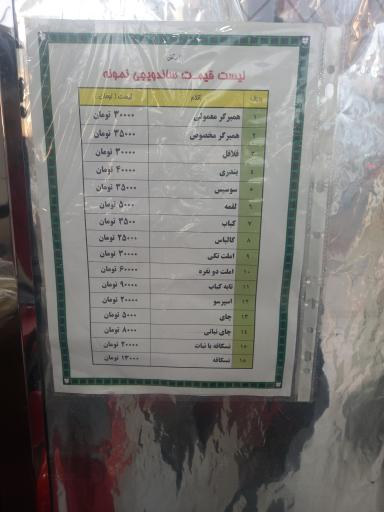 لیست قیمت ساندویچی نمونه
ردیف اقلام قیمت / تومان
۱ همبرگر معمولی ۳۰۰۰۰ تومان
۲ همبرگر مخصوص ۳۵۰۰۰ تومان
۳ فلافل ۳۰۰۰۰ تومان
۴ بندری ۴۰۰۰۰ تومان
۵ سوسیس ۳۵۰۰۰ تومان
۶ لقمه ۵۰۰۰ تومان
۷ کباب ۳۵۰۰ تومان
۸ کالباس ۲۵۰۰۰ تومان
۹ املت تکی ۳۰۰۰۰ تومان
۱۰ املت دو نفره ۶۰۰۰۰ تومان
۱۱ تابه کباب ۹۰۰۰۰ تومان
۱۲ اسپرسو ۲۰۰۰۰ تومان
۱۳ چای ۵۰۰۰ تومان
۱۴ چای نباتی ۸۰۰۰ تومان
۱۵ نسکافه با نبات ۲۰۰۰۰ تومان
۱۶ نسکافه ۱۳۰۰۰ تومان